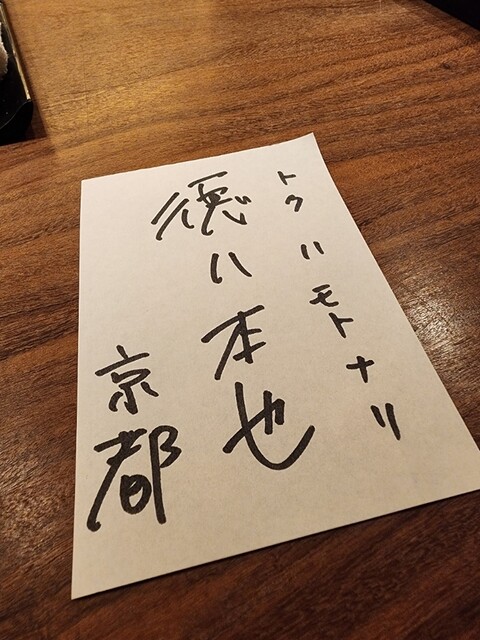 トクハモトナリ
德ハ本也
京都